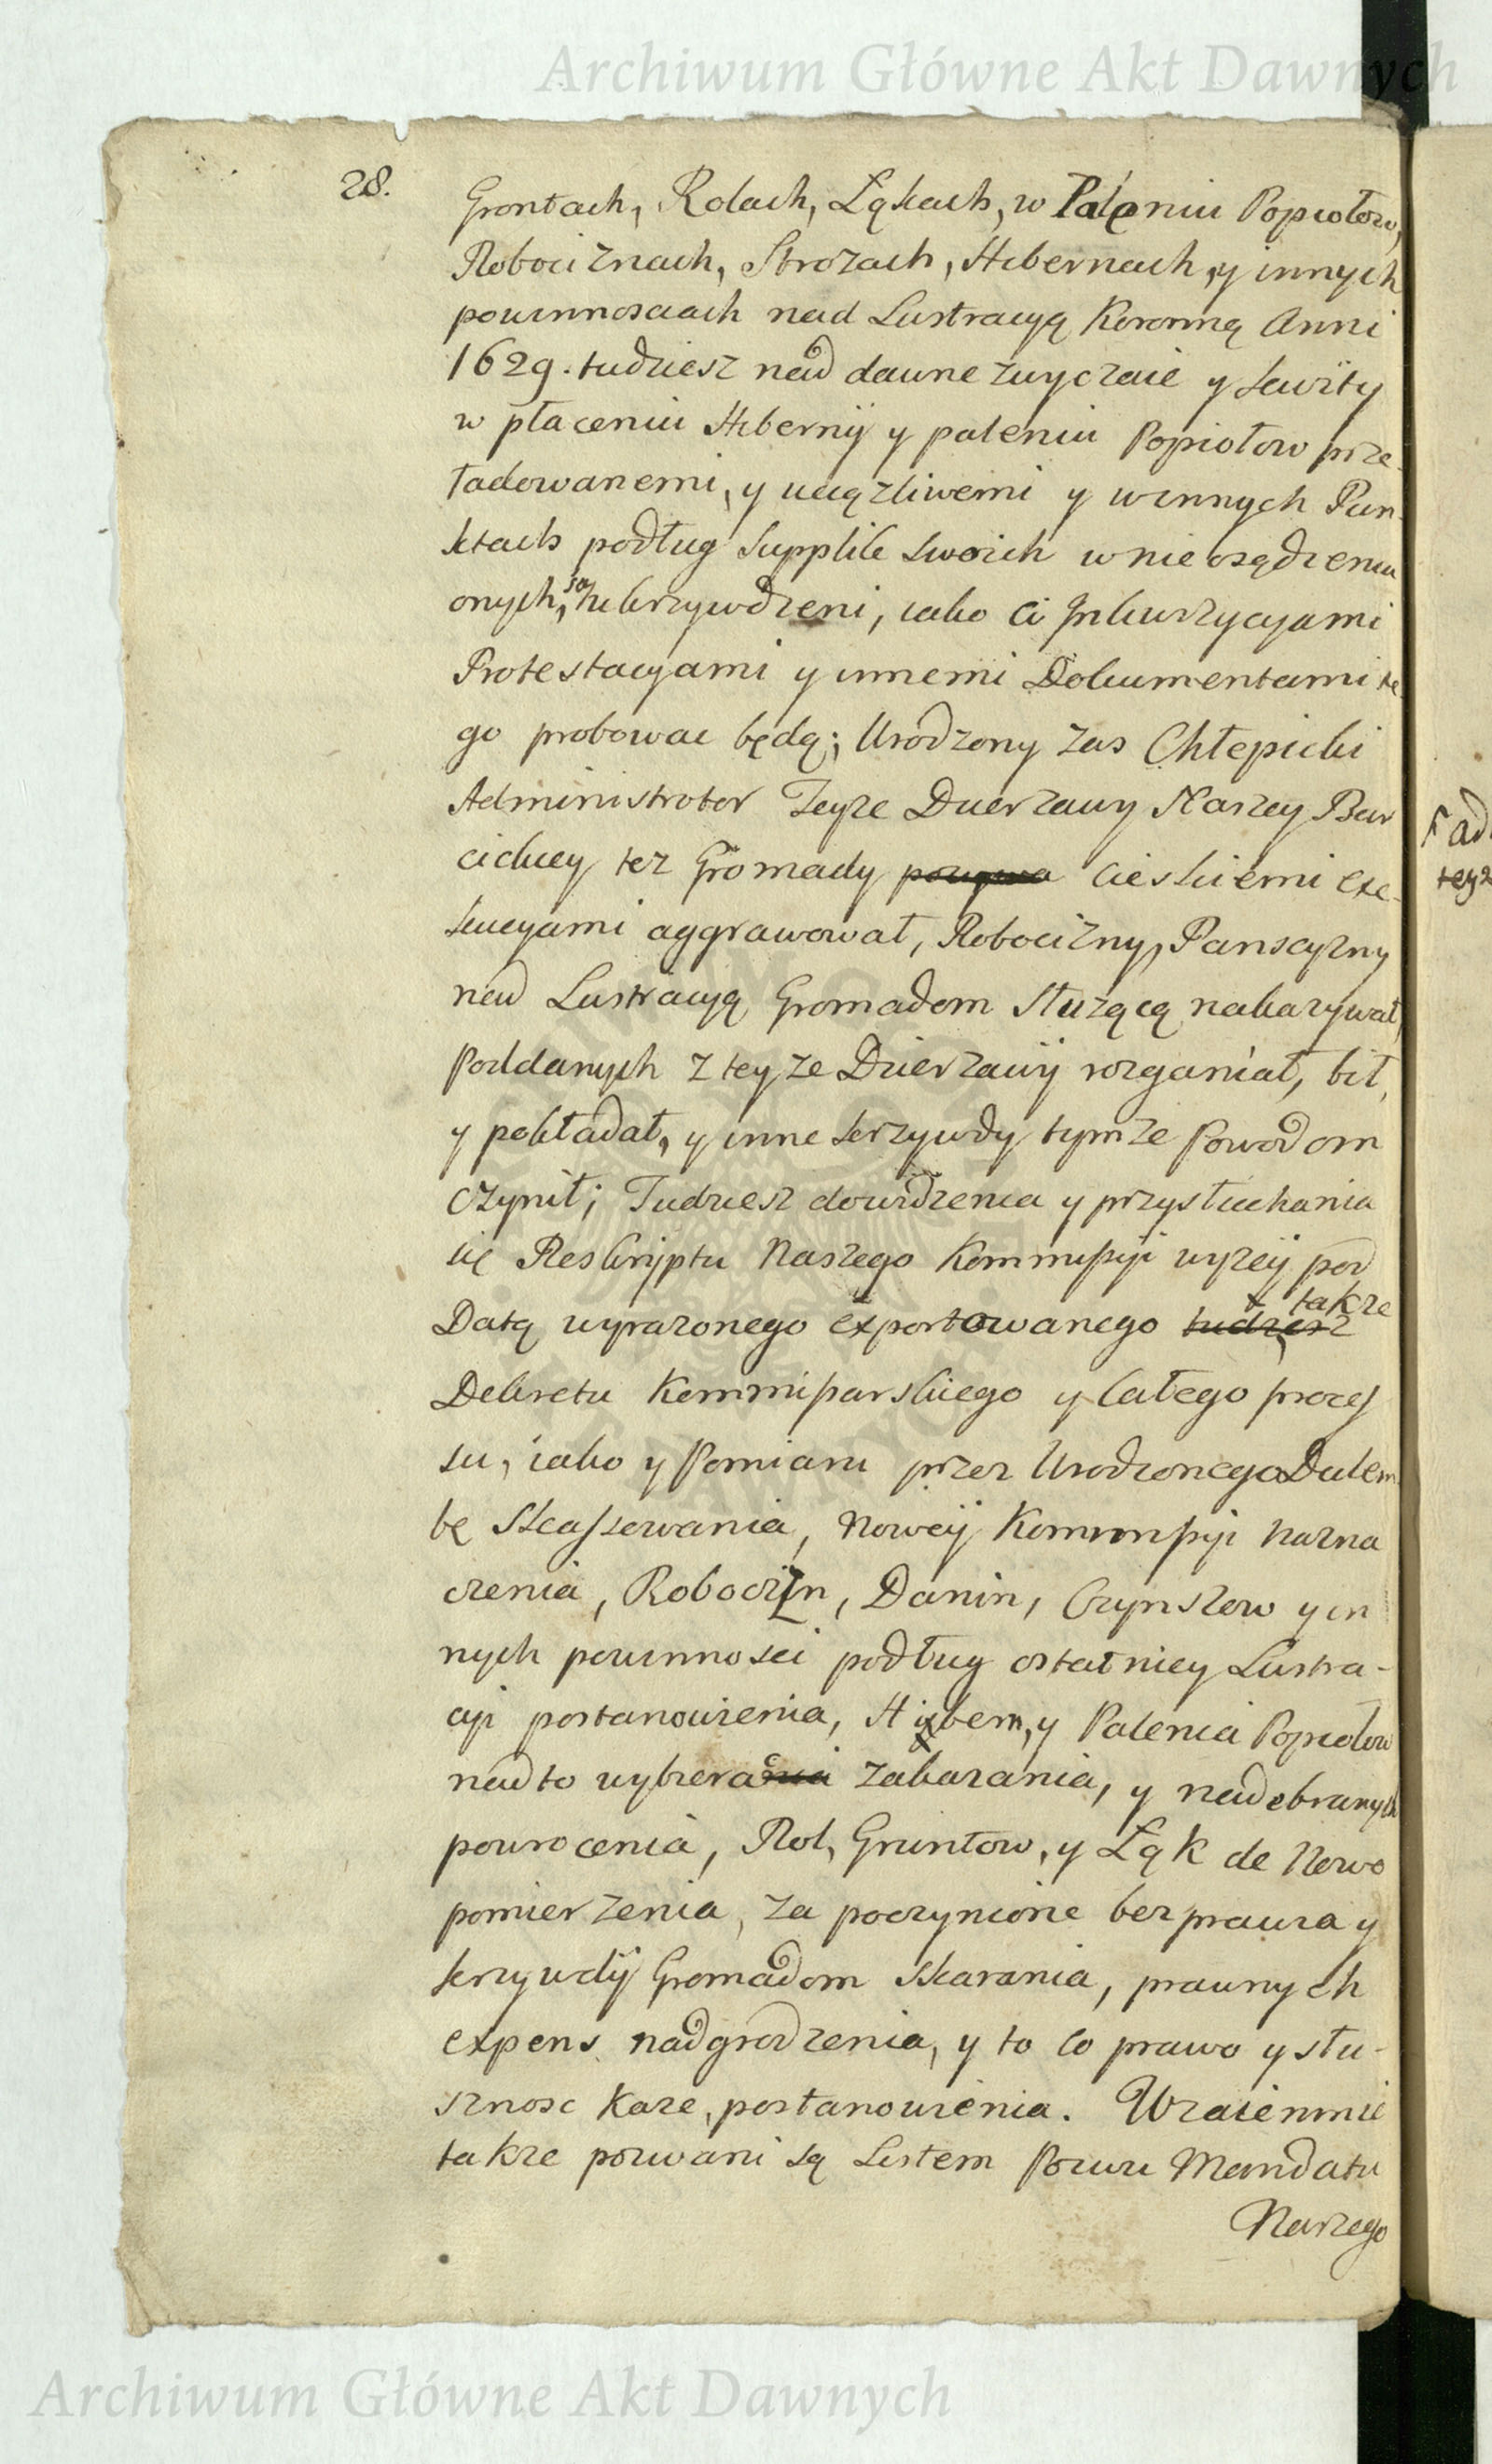 Archiwum Główne Akt Dawnych
28.
Grontach, Rolach, Łąkach, w Paleniu Popiołow,
Robociznach, Strozach, Hibernach, y innych
powinnosciach nad Lustracyą Koronną Anni
1629. tudziesz nad dawne zwyczaie y kwity
w płaceniu Hibernij y paleniu Popiołow prze-
ładowanemi, y uciązliwemi y w innych Pun-
ktach podług Supplik swoich w nie osądzeniu
onych, są ukrzywdzeni, iako ci Inkwizycyami
Protestacyami y innemi Dokumentami te-
go probowac będą; Urodzony zas Chłepicki
Administrator Teyze Dzierzawy Naszey Bar
cickiey tez Gromady cieszkiemi exe-
kucyami aggrawował, Robocizny, Panscyzny
nad Lustracyą Gromadom słuzącą nakazywał,
Poddanych z teyze Dzierzawy rozganiał, bił,
y pokładał, y inne krzywdy tymze Powodom
czynił; Tudziesz dowidzenia y przysłuchania
się Reskryptu Naszego Kommissyi wyzeij pod
Datą wyrazonego exportowanego tudziesz takze
Dekretu Kommissarskiego y całego proces
su, iako y Pomiaru przez Urodzonego Dulem
bę Skassowania, Noweij Kommissyi nazna
czenia, Roboczizn, Danin, Czynszow y in
nych powinnosci podług ostatniey Lustra-
cyi postanowienia, Hibern, y Palenia Popiołow
nadto wybierac zakazania, y nadebranych
powrocenia, Rol, Gruntow, y Łąk de Novo
pomierzenia, za poczynione bezprawia y
krzywdy Gromadom skarania, prawnych
expens nadgrodzenia, y to co prawo y słu-
sznosc kaze, postanowienia. Wzaiemnie
takze pozwani są Listem Pozwu Mandatu
Naszego
teyz
Archiwum Główne Akt Dawnych